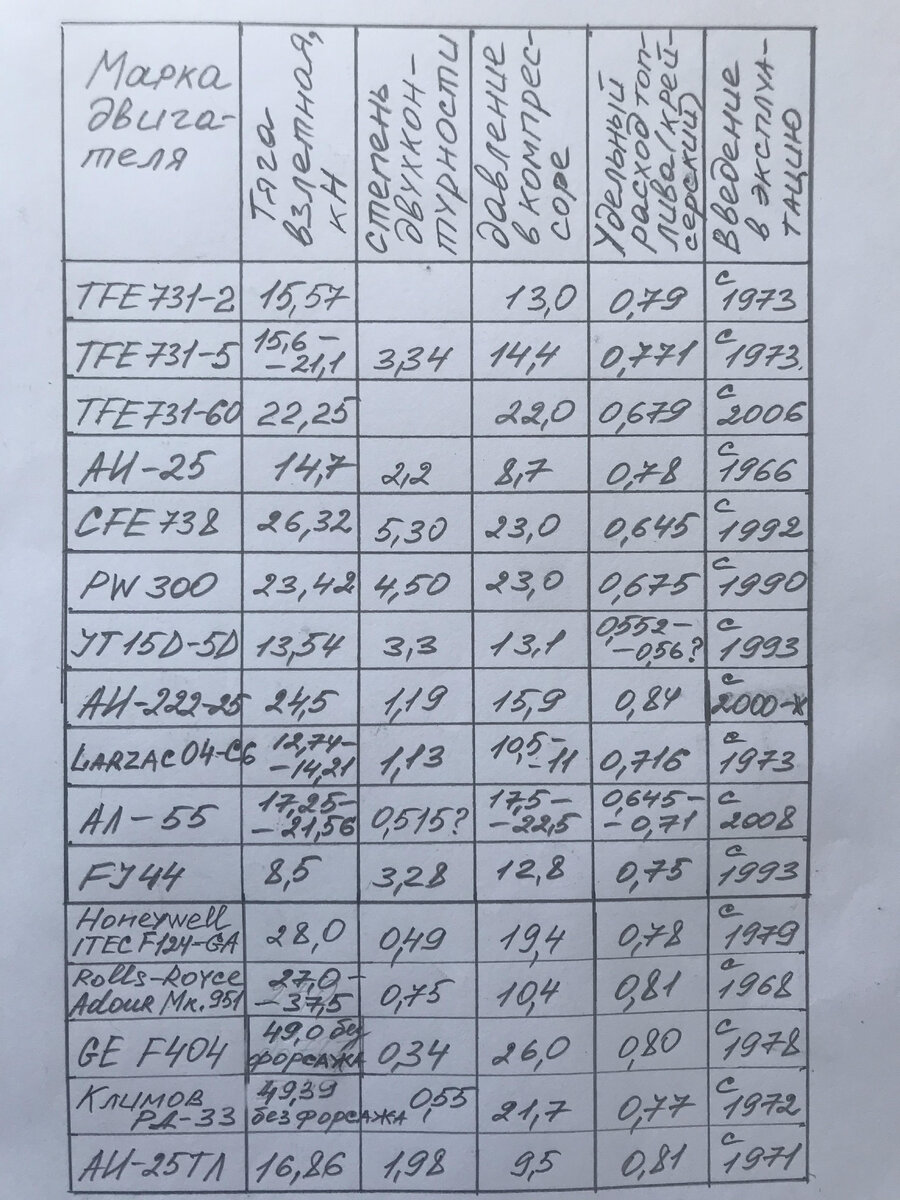 Марка
двига-
теля
Тяга
взлетная,
кН
степень
двухкон-
турности
давление
в компрес-
соре
Удельный
расход топ-
лива(крей-
серский)
Введение
в эксплуа-
тацию
TFE731-2 15,57 13,0 0,79 с 1973
TFE731-5 15,6-
-21,1 3,34 14,4 0,771 с 1973.
TFE731-60 22,25 22,0 0,679 с 2006
АИ-25 14,7 2,2 8,7 0,78 с 1966
CFE738 26,32 5,30 23,0 0,645 с 1992
PW300 23,42 4,50 23,0 0,675 с 1990
JT15D-5D 13,54 3,3 13,1 0,552-
-0,56? с 1993
АИ-222-25 24,5 1,19 15,9 0,84 с 2000-х
LARZAC04-C6 12,74-
-14,21 1,13 10,5-
-11 0,716 с 1973
АЛ-55 17,25-
-21,56 0,515? 17,5-
-22,5 0,645-
-0,71 с 2008
FJ44 8,5 3,28 12,8 0,75 с 1993
Honeywell
ITEC F124-GA 28,0 0,49 19,4 0,78 с 1979
Rolls-Royce
Adour Mk.951 27,0-
-37,5 0,75 10,4 0,81 с 1968
GE F404 49,0 без
форсажа 0,34 26,0 0,80 с 1978
Климов
РД-33 49,39
без форсажа 0,55 21,7 0,77 с 1972
АИ-25ТЛ 16,86 1,98 9,5 0,81 с 1971